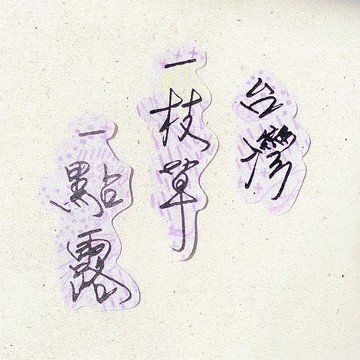 台灣
一枝草
一點露